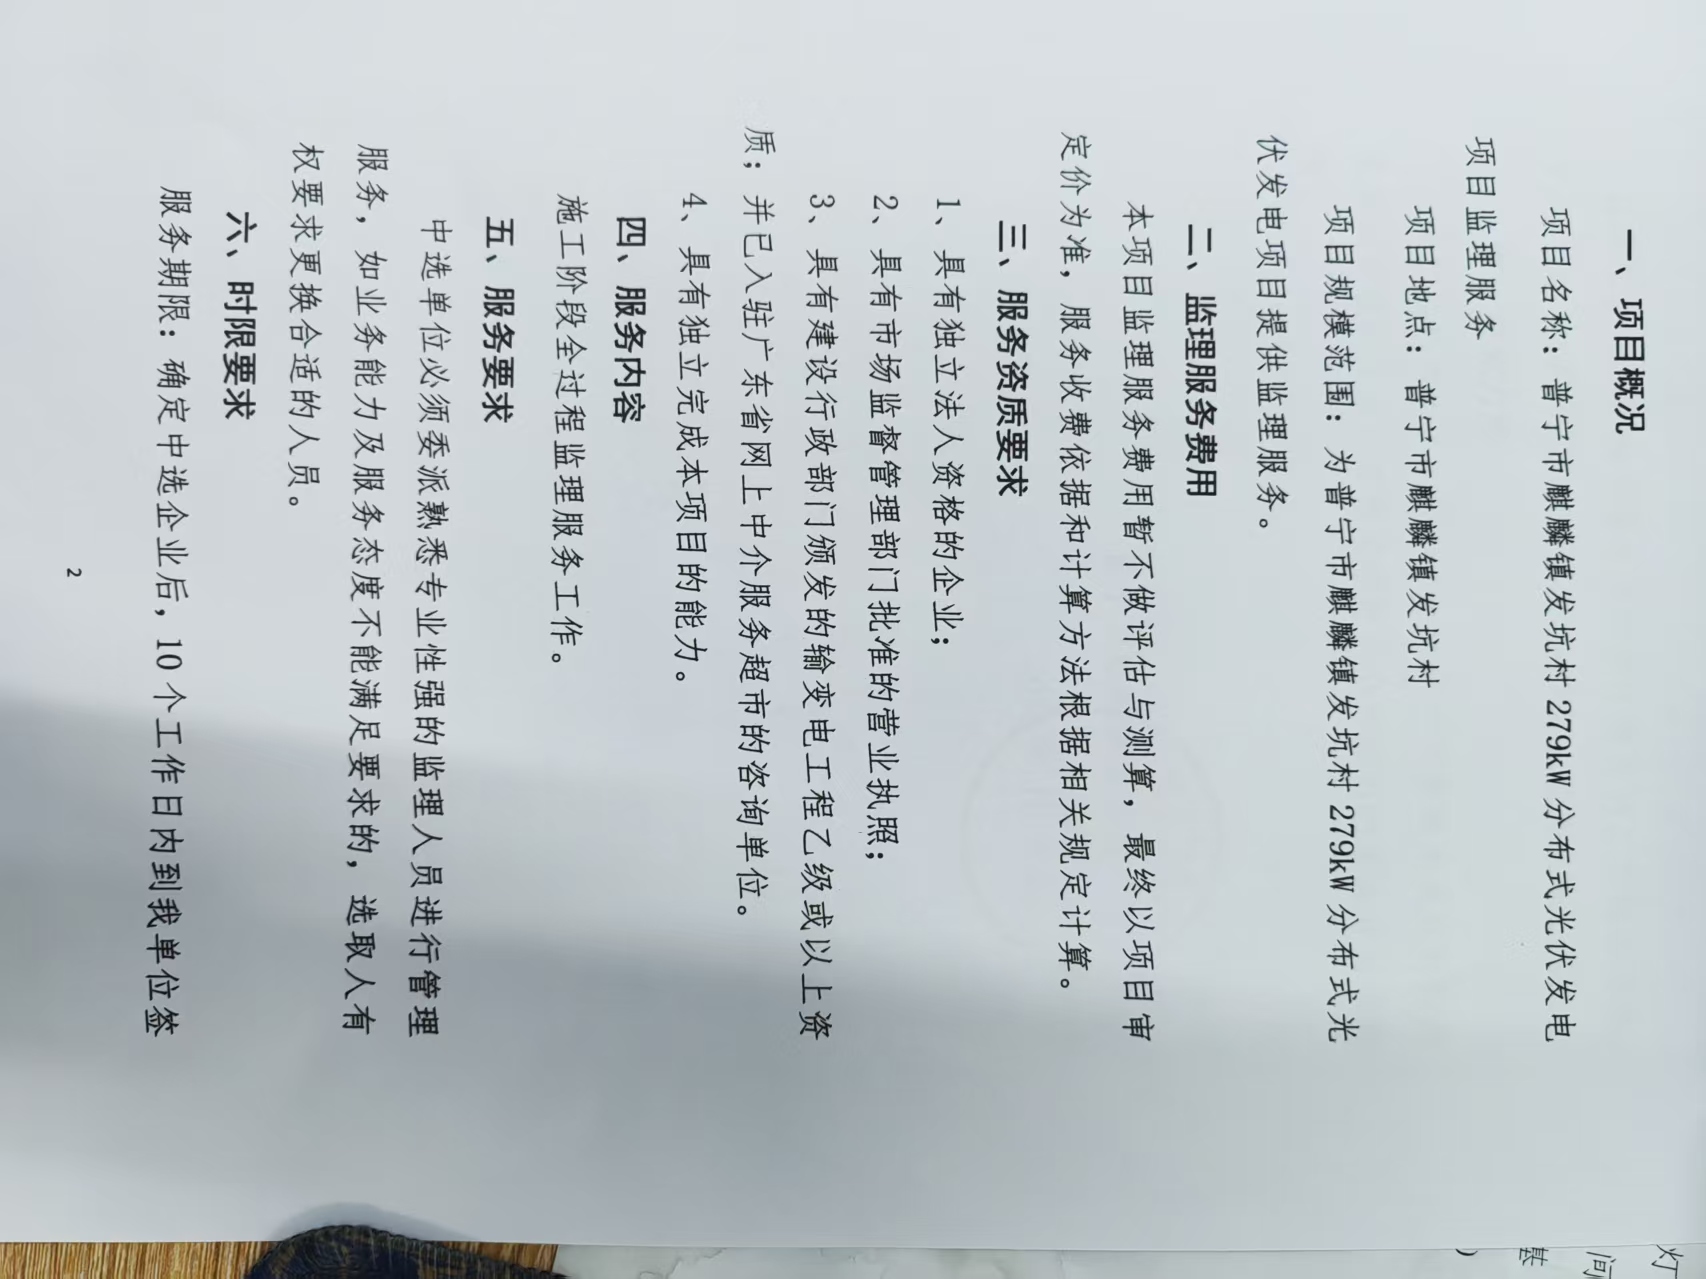 一、项目概况
项目名称：普宁市麒麟镇发坑村 279kW 分布式光伏发电
项目监理服务
项目地点：普宁市麒麟镇发坑村
项目规模范围：为普宁市麒麟镇发坑村 279kW 分布式光
伏发电项目提供监理服务。
二、监理服务费用
本项目监理服务费用暂不做评估与测算，最终以项目审
定价为准，服务收费依据和计算方法根据相关规定计算。
三、服务资质要求
1、具有独立法人资格的企业；
2、具有市场监督管理部门批准的营业执照；
3、具有建设行政部门颁发的输变电工程乙级或以上资
质；并已入驻广东省网上中介服务超市的咨询单位。
4、具有独立完成本项目的能力。
四、服务内容
施工阶段全过程监理服务工作。
五、服务要求
中选单位必须委派熟悉专业性强的监理人员进行管理
服务，如业务能力及服务态度不能满足要求的，选取人有
权要求更换合适的人员。
六、时限要求
服务期限：确定中选企业后，10 个工作日内到我单位签
2
灯
间